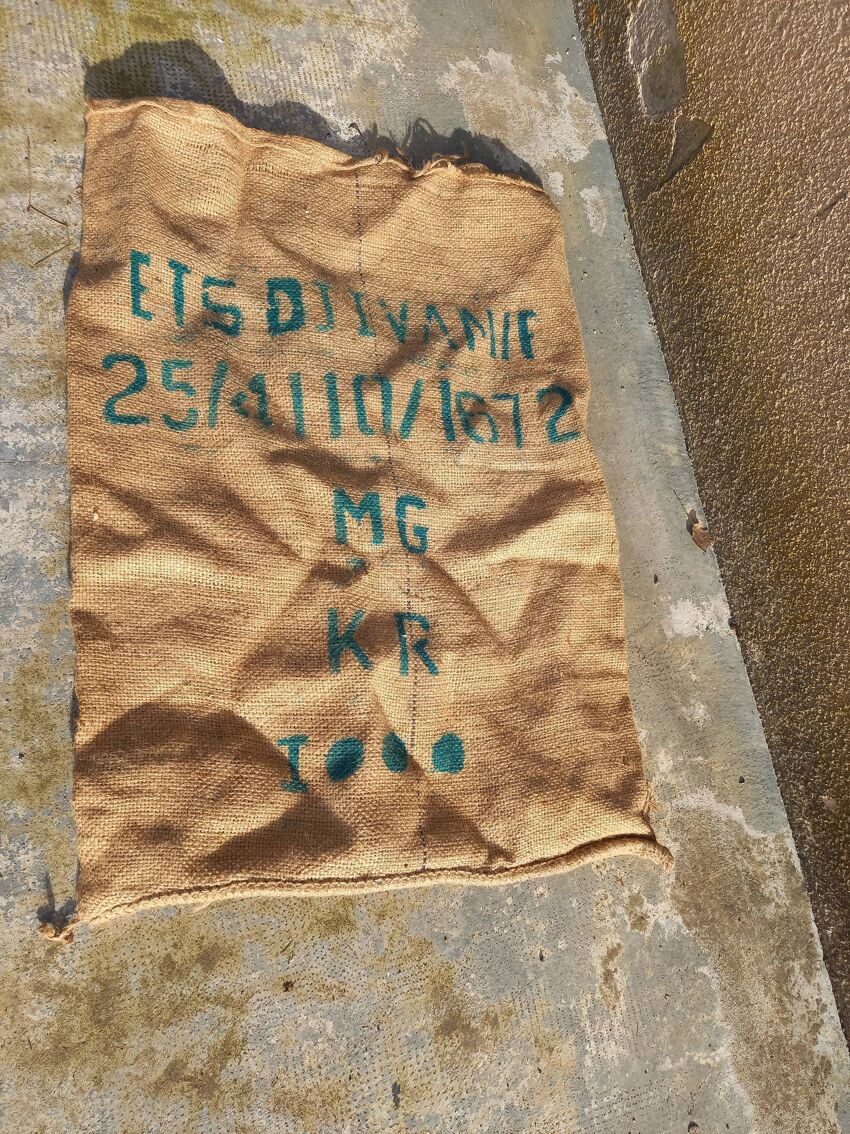 ETS DJIVANIE
25/4110/1672
MG
KR
I000